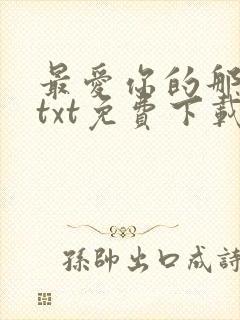 最愛你的那
txt免費下載
孫帥出口成詩